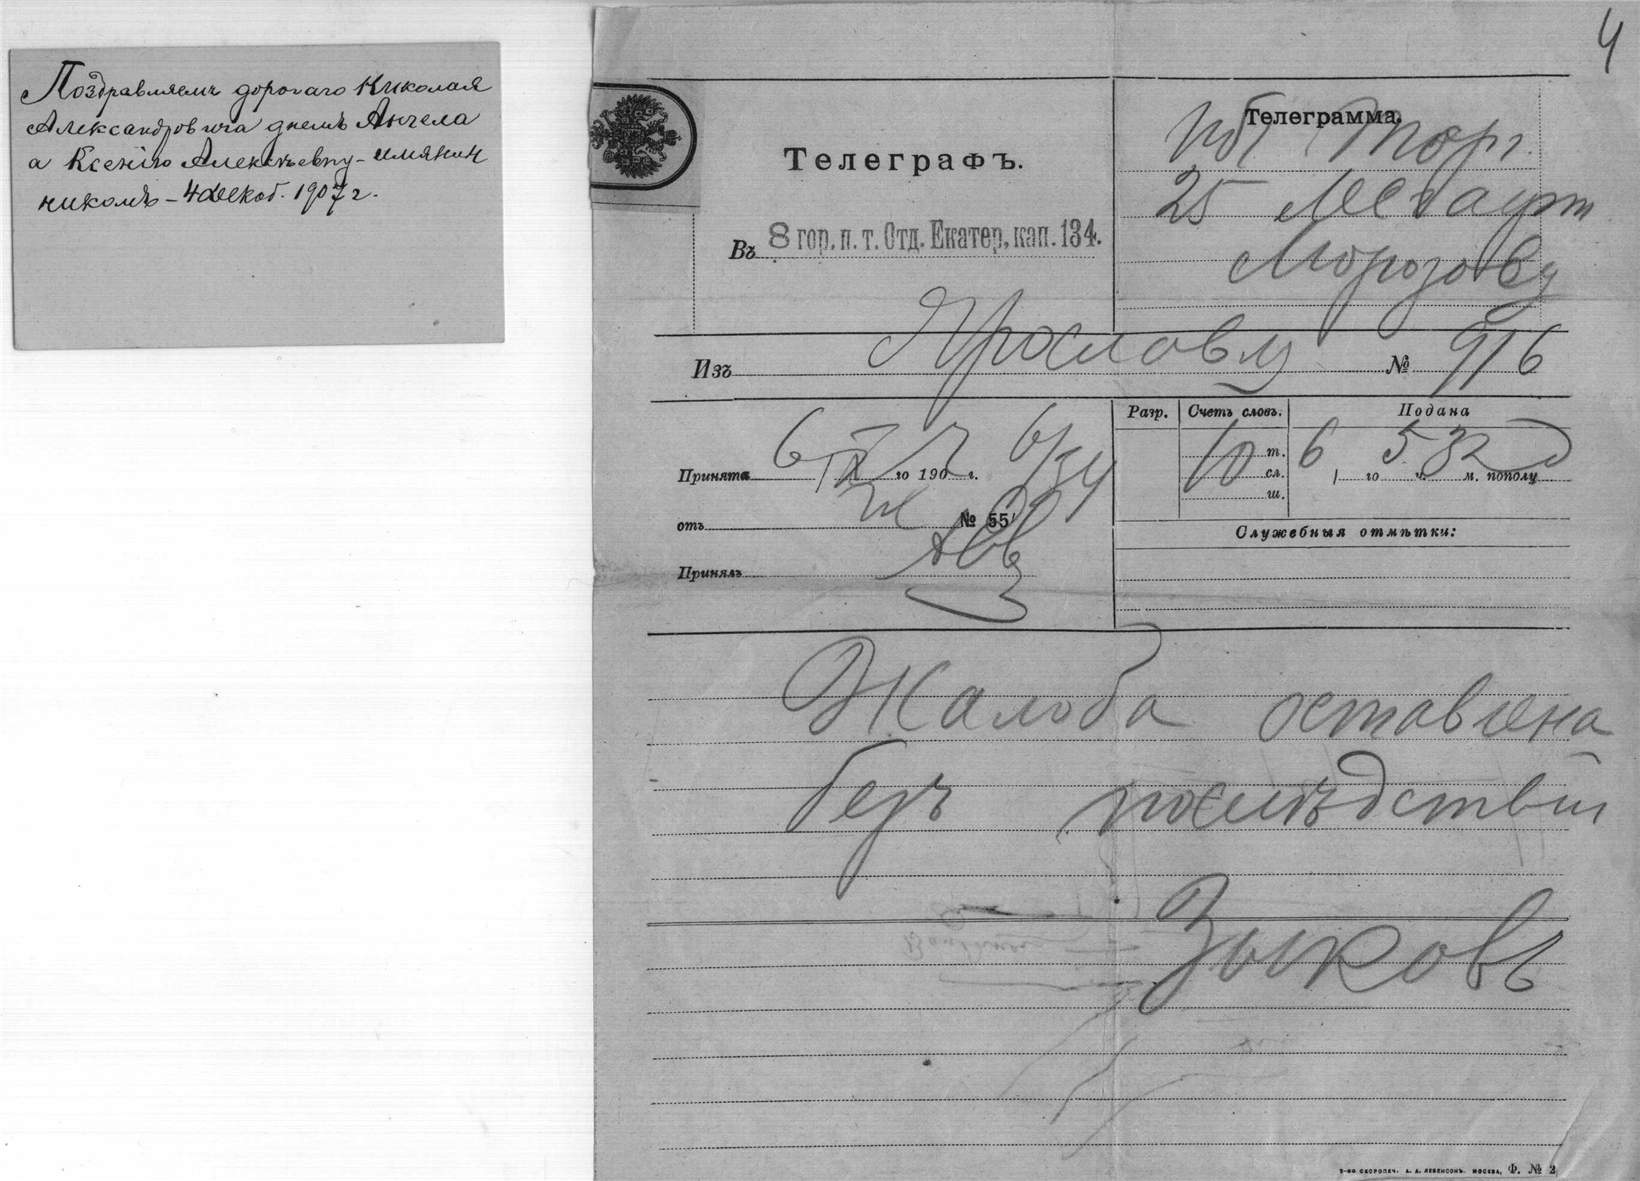 Поздравляемъ дорогаго Николая
Александровича днемъ Ангела
а Ксенію Алексѣевну - имянин
никомъ - 4 декаб. 1907 г.
4
Телеграфъ.
Въ 8 гор. п. т. Отд. Екатер. кан. 134.
Телеграмма.
Спб Торг.
25
Морозову
Изъ Ярославля № 916
Принята 6/ го 1907 г. 6/34
отъ № 55
Принялъ
Разр. Счетъ словъ. Подана
10 т. сл. ш.
6 го 5 ч. 32 м. пополу д
Служебныя отмѣтки:
Жалоба оставлена
безъ послѣдствій
Зыковъ
Т-во скоропеч. А. А. Левенсонъ. Москва. Ф. № 2